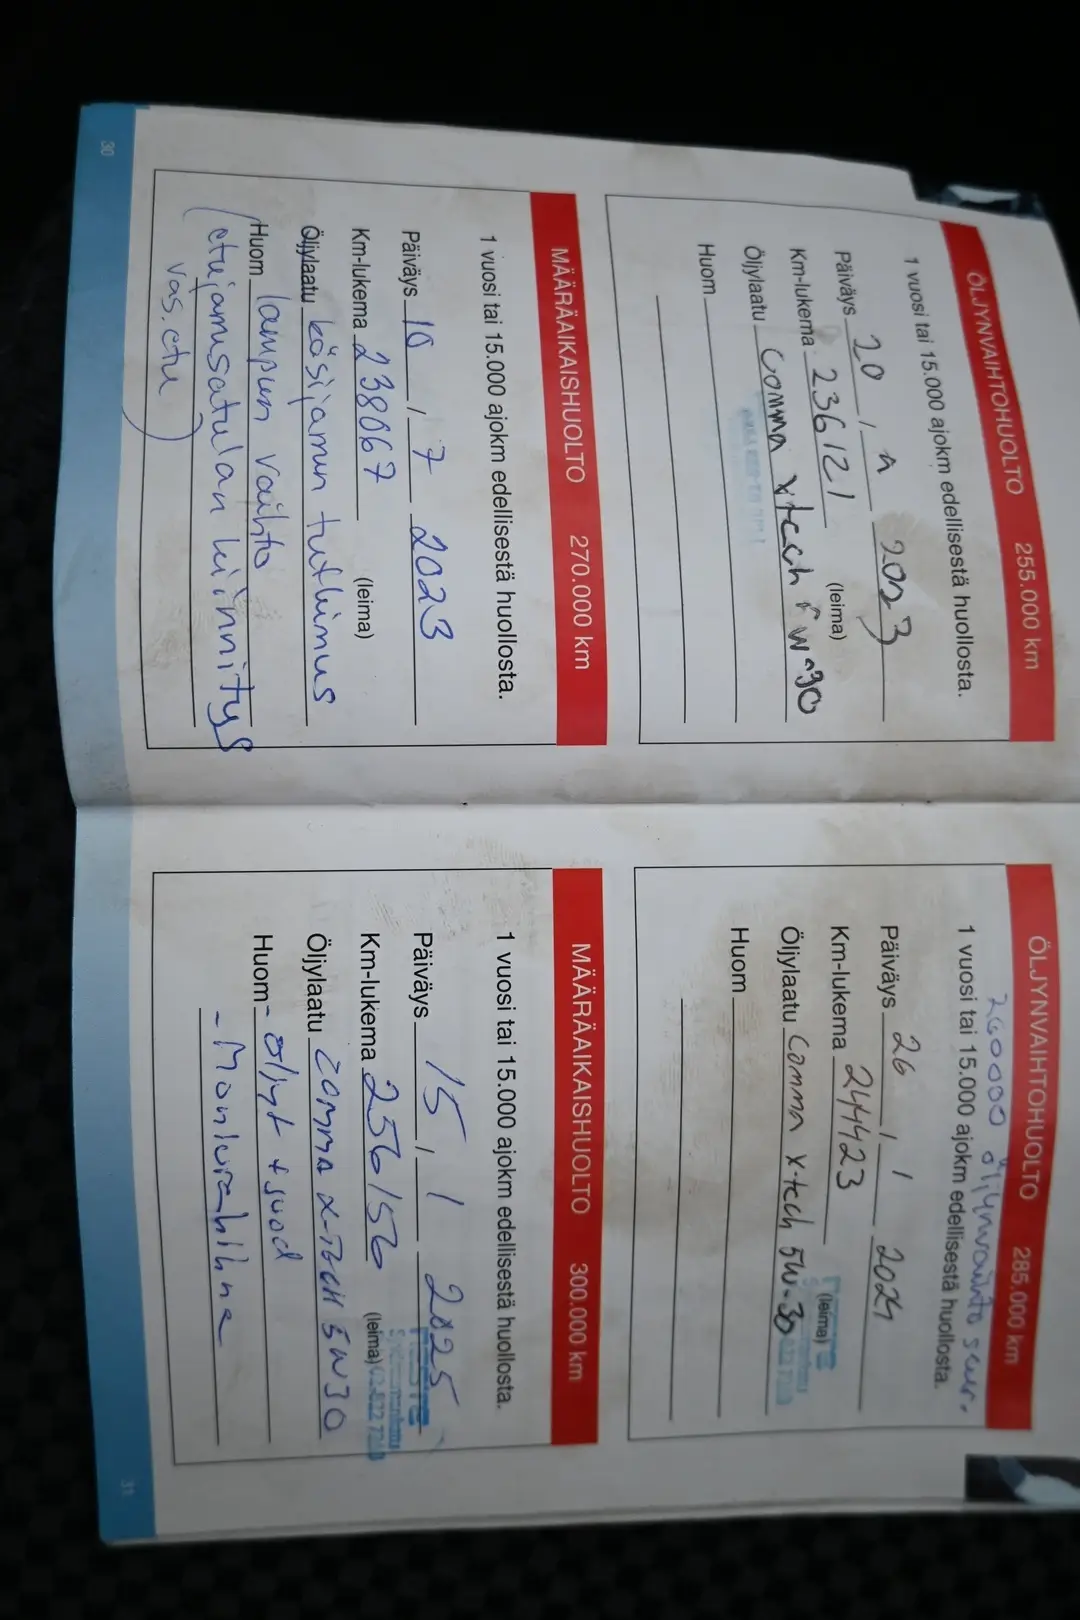 ÖLJYNVAIHTOHUOLTO 255.000 km
1 vuosi tai 15.000 ajokm edellisestä huollosta.
Päiväys 20 / 2023
Km-lukema 236121 (leima)
Öljylaatu Comma xtech
Huom
MÄÄRÄAIKAISHUOLTO 270.000 km
1 vuosi tai 15.000 ajokm edellisestä huollosta.
Päiväys 10 / 7 2023
Km-lukema 238067 (leima)
Öljylaatu käsijarrun tutkimus
Huom lampun vaihto
(etujarrusatulan kiinnitys
vas. etu)
30
ÖLJYNVAIHTOHUOLTO 285.000 km
260000 öljynvaihto seur.
1 vuosi tai 15.000 ajokm edellisestä huollosta.
Päiväys 26 / 1 2024
Km-lukema 244423 (leima)
Öljylaatu Comma X-tech 5W-30
Huom
MÄÄRÄAIKAISHUOLTO 300.000 km
1 vuosi tai 15.000 ajokm edellisestä huollosta.
Päiväys 15 / 1 2025
Km-lukema 256156 (leima)
Öljylaatu COMMA X-TECH 5W30
Huom - öljyt + suod
- Moniurahihna
31